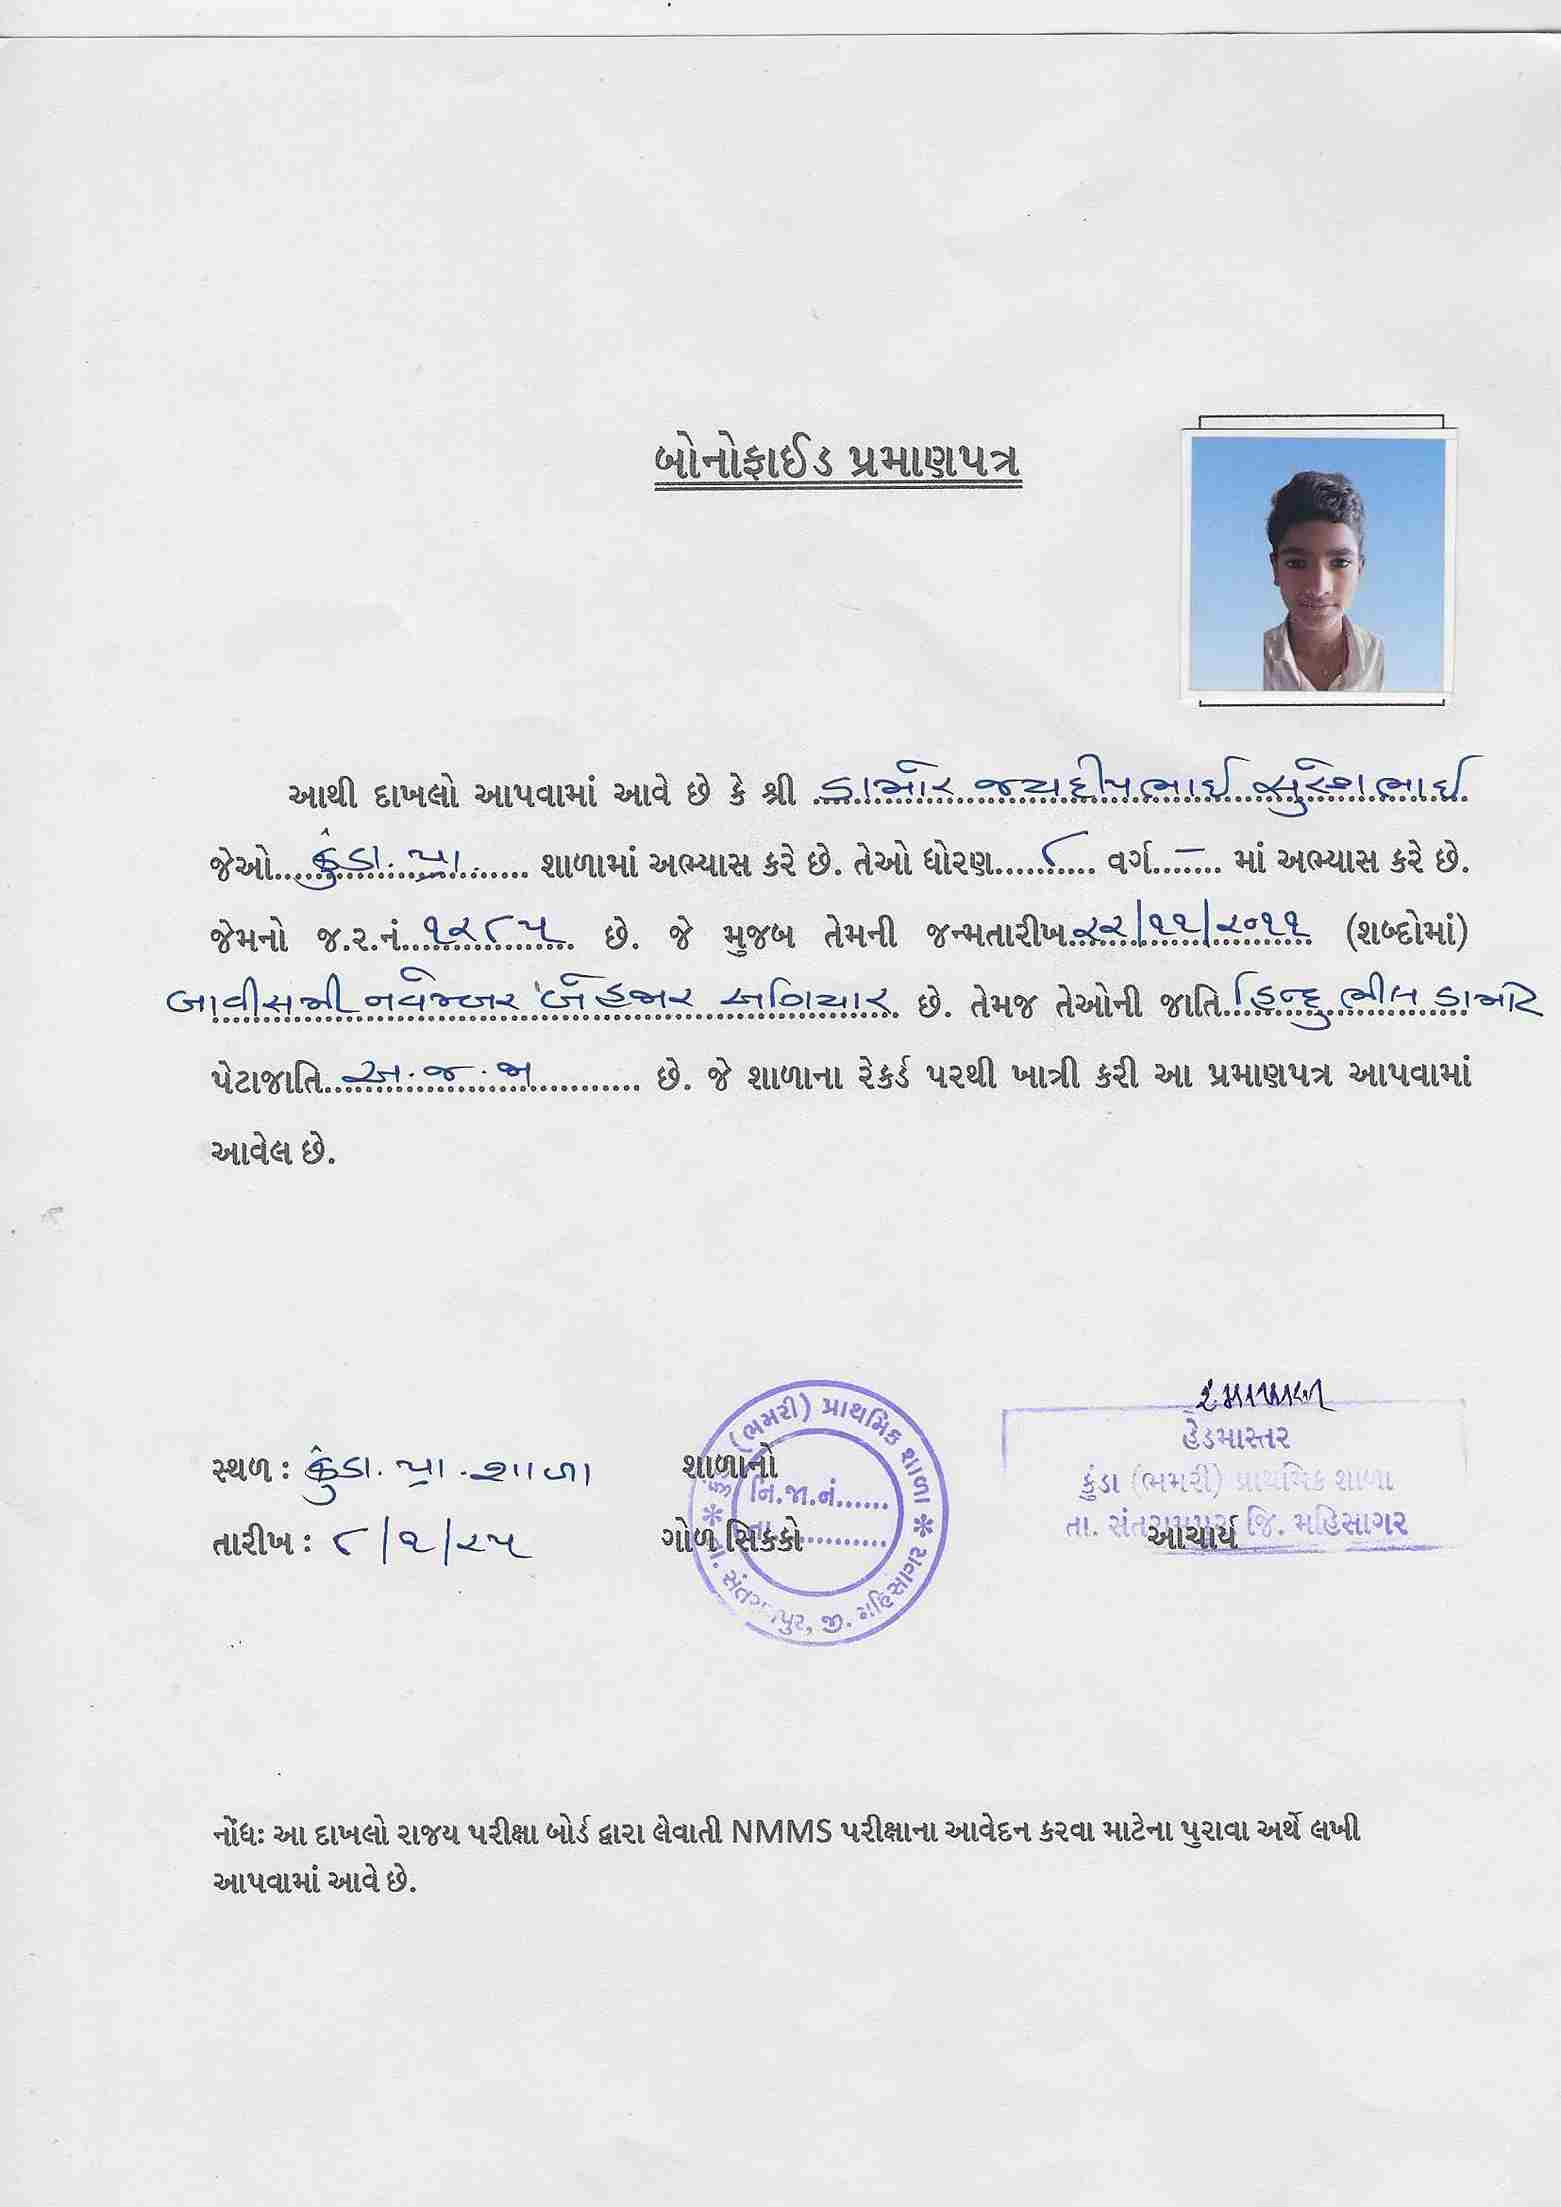 બોનોફાઈડ પ્રમાણપત્ર
આથી દાખલો આપવામાં આવે છે કે શ્રી ડામોર જયદીપભાઈ સુરેશભાઈ
જેઓ....કુંડા. પ્રા....... શાળામાં અભ્યાસ કરે છે. તેઓ ધોરણ....૮.... વર્ગ...–.... માં અભ્યાસ કરે છે.
જેમનો જ.ર.નં...૧૨૮૫... છે. જે મુજબ તેમની જન્મતારીખ..૨૨/૧૧/૨૦૧૧ (શબ્દોમાં)
બાવીસમી નવેમ્બર બે હજાર અગિયાર છે. તેમજ તેઓની જાતિ..હિન્દુ ભીલ ડામોર
પેટાજાતિ..અ.જ.જા........... છે. જે શાળાના રેકર્ડ પરથી ખાત્રી કરી આ પ્રમાણપત્ર આપવામાં
આવેલ છે.
હેડમાસ્તર
કુંડા (ભમરી) પ્રાથમિક શાળા
તા. સંતરામપુર, જિ. મહિસાગર
સ્થળ : કુંડા. પ્રા. શાળા
શાળાનો
તારીખ : ૮/૧/૨૫
ગોળ સિક્કો
આચાર્ય
કુંડા (ભમરી) પ્રાથમિક શાળા * તા. સંતરામપુર, જી. મહિસાગર *
નિ.જા.નં......
તા............
નોંધઃ આ દાખલો રાજ્ય પરીક્ષા બોર્ડ દ્વારા લેવાતી NMMS પરીક્ષાના આવેદન કરવા માટેના પુરાવા અર્થે લખી
આપવામાં આવે છે.